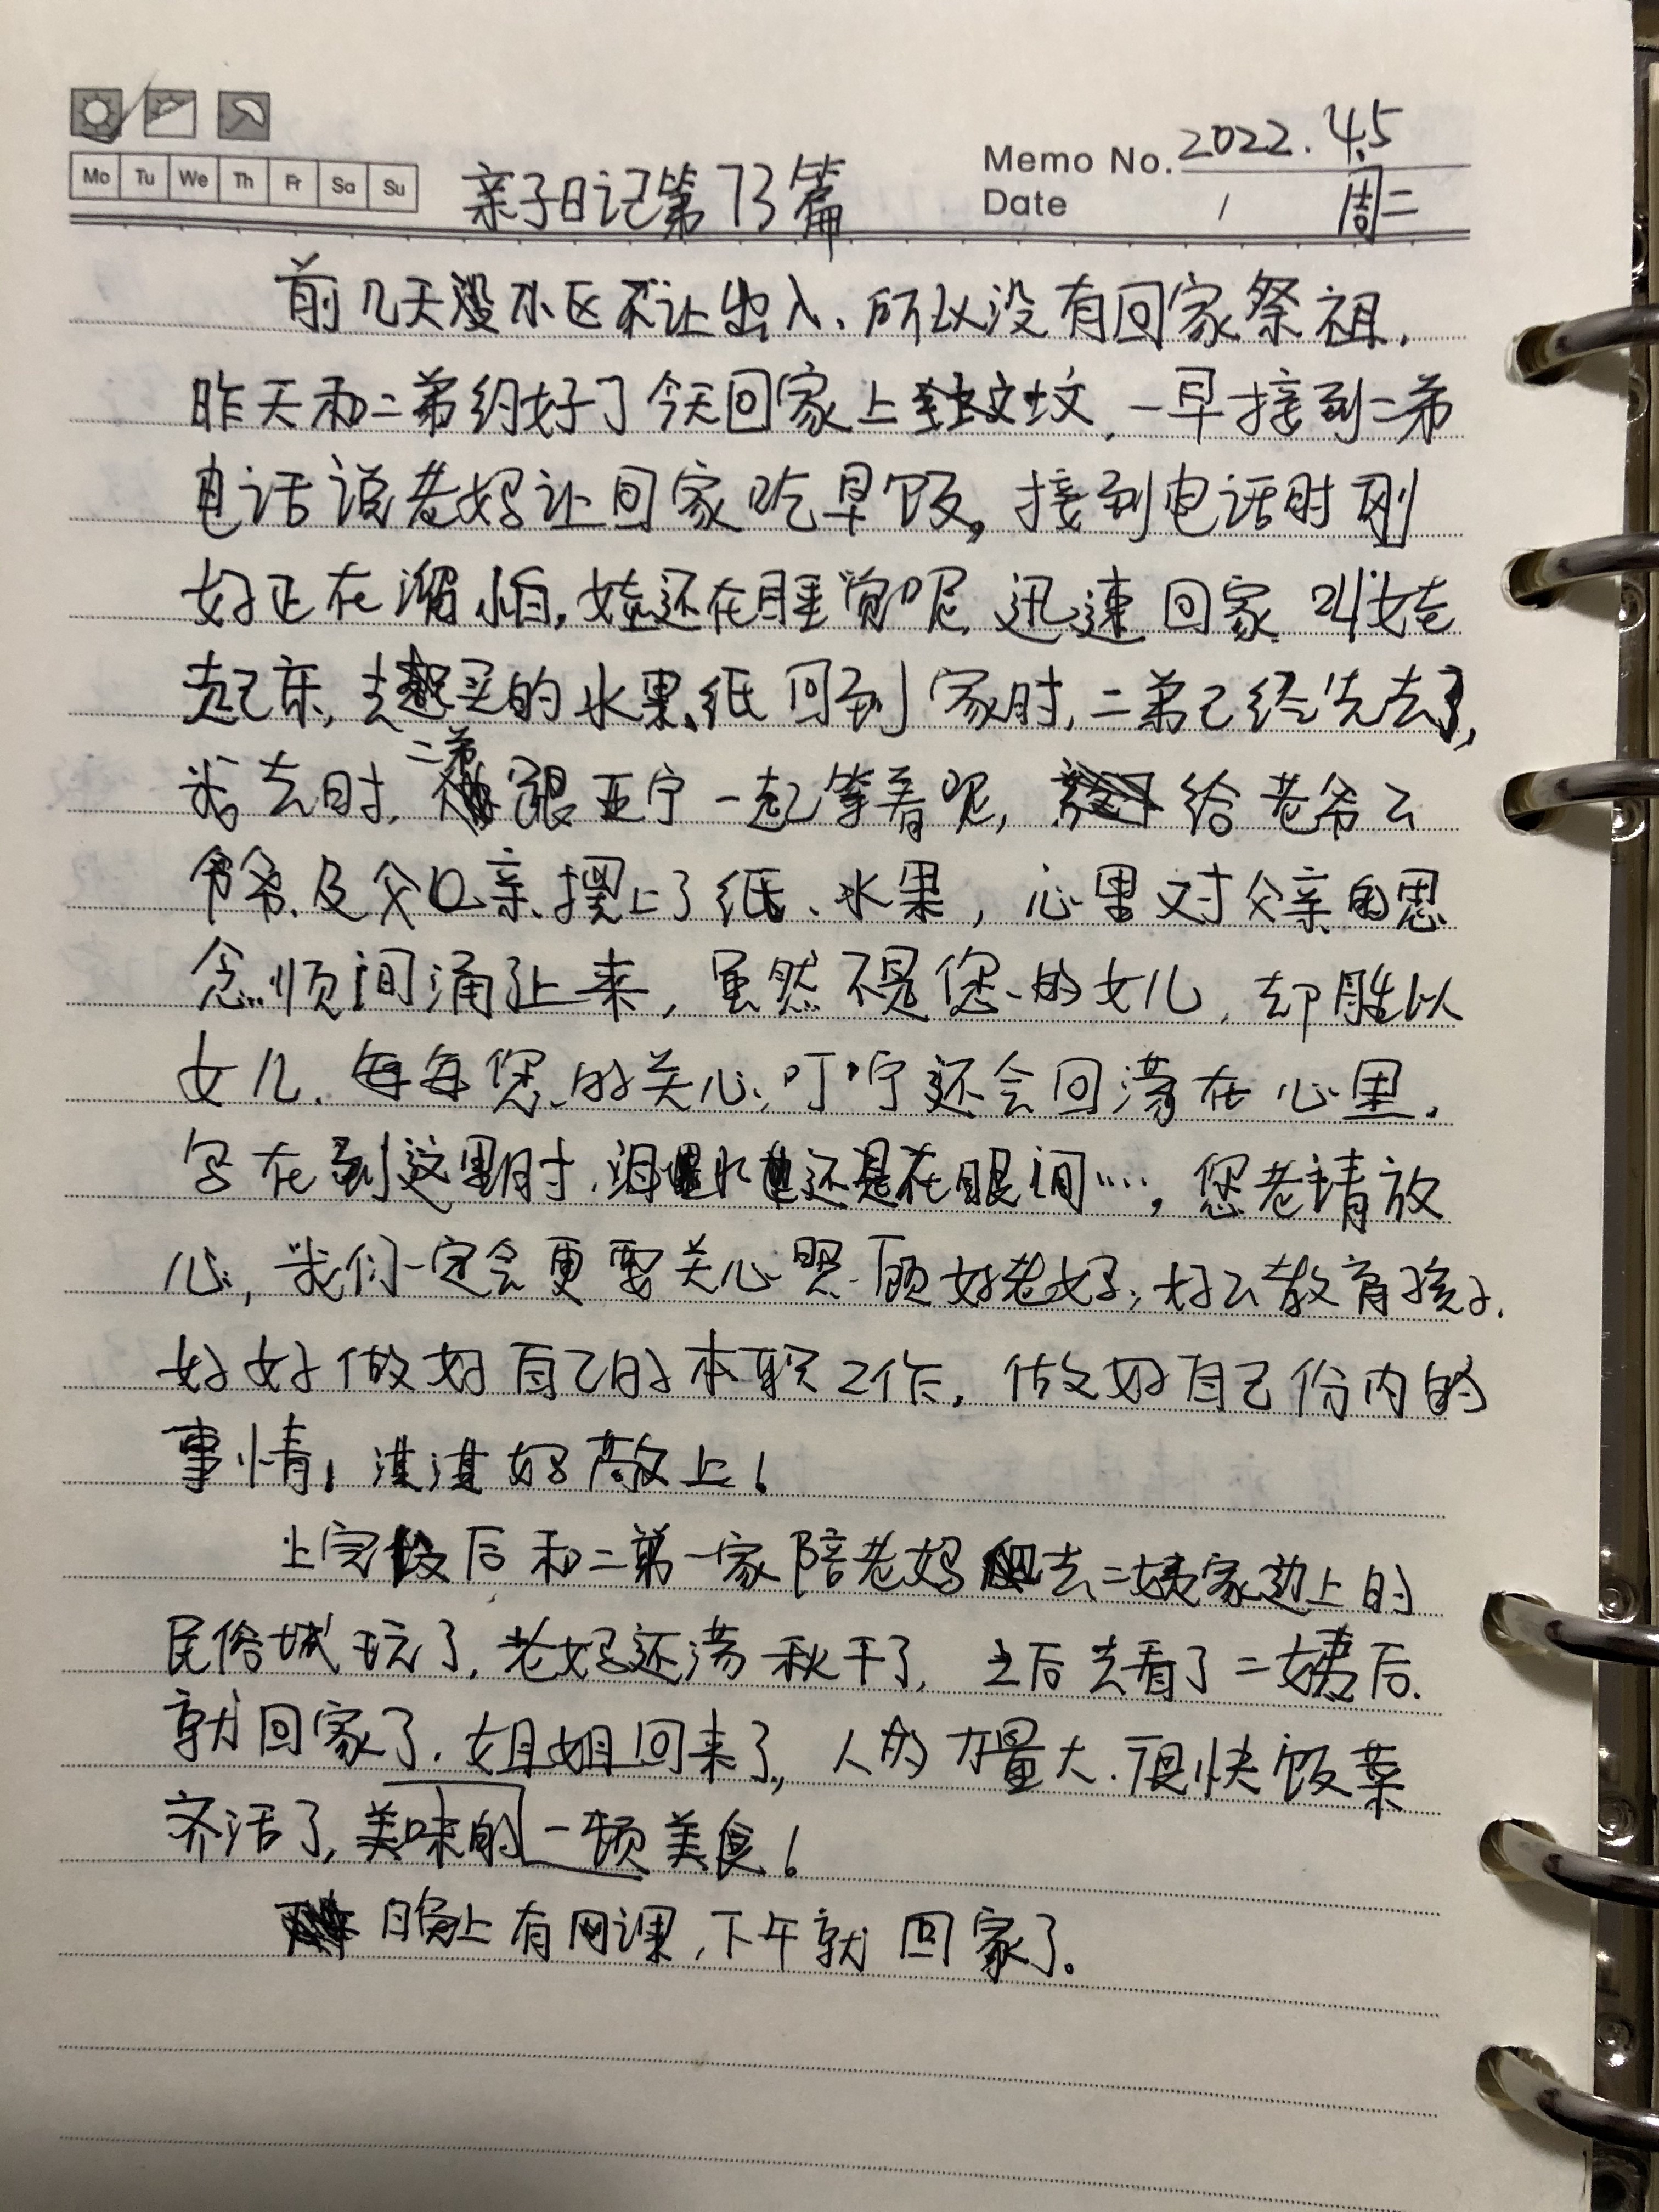 2022.4.5
Memo No.
Mo Tu We Th Fr Sa Su
亲子日记第73篇
Date / 周二
前几天小区不让出入、所以没有回家祭祖.
昨天和二弟约好了今天回家上坟,一早接到二弟
电话说老妈让回家吃早饭,接到电话时刚
好正在溜怕,娃还在睡觉呢,迅速回家叫娃
起床,去买的水果、纸回到家时,二弟已经先去了,
我去时,二弟跟亚宁一起等着呢,给老爷々
爷爷、及父亲摆上了纸、水果,心里对父亲的思
念顷间涌上来,虽然不是您的女儿,却胜以
女儿.每每您的关心、叮咛还会回荡在心里.
写在到这里时,泪水还是在眼间……,您老请放
心,我们一定会更要关心照顾好老妈,好々教育孩子.
好好做好自己的本职工作,做好自己份内的
事情,淇淇妈敬上!
上完坟后和二弟一家陪老妈去二姨家边上的
民俗城玩了,老妈还荡秋千了,之后去看了二姨后.
就回家了.姐姐回来了,人的力量大.很快饭菜
齐活了,美味的一顿美食!
晚上有网课,下午就回家了。